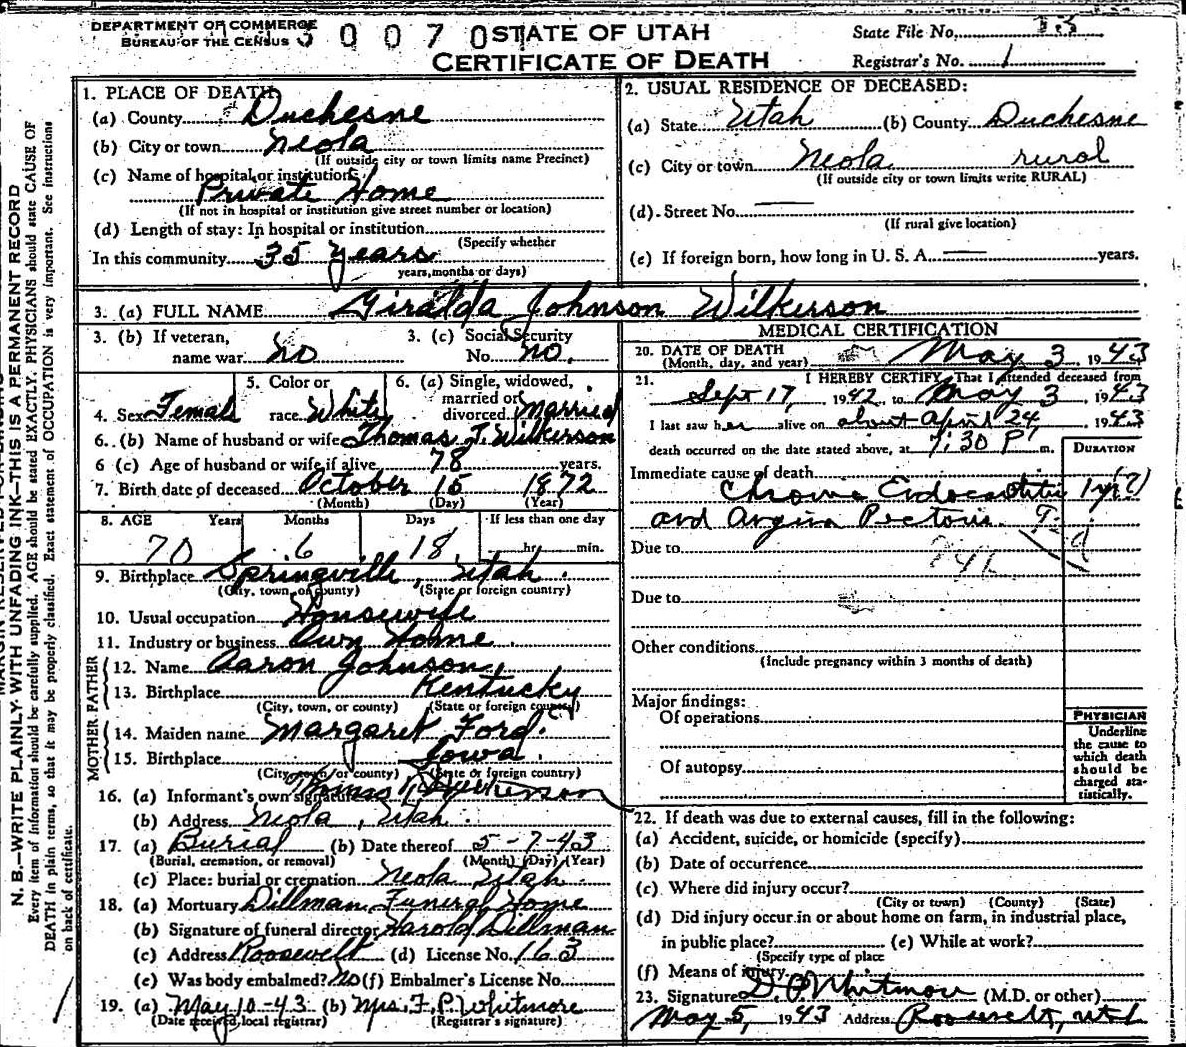 DEPARTMENT OF COMMERCE
BUREAU OF THE CENSUS
3 0 0 7 0 1
STATE OF UTAH
CERTIFICATE OF DEATH
State File No. 13
Registrar's No. 1
N. B.—WRITE PLAINLY WITH UNFADING INK—THIS IS A PERMANENT RECORD
Every item of information should be carefully supplied. AGE should be stated EXACTLY. PHYSICIANS should state CAUSE OF
DEATH in plain terms, so that it may be properly classified. Exact statement of OCCUPATION is very important. See instructions
on back of certificate.
1. PLACE OF DEATH:
(a) County Duchesne
(b) City or town Neola
(If outside city or town limits name Precinct)
(c) Name of hospital or institution:
Private Home
(If not in hospital or institution give street number or location)
(d) Length of stay: In hospital or institution
(Specify whether
In this community 35 years
years, months or days)
2. USUAL RESIDENCE OF DECEASED:
(a) State Utah (b) County Duchesne
(c) City or town Neola rural
(If outside city or town limits write RURAL)
(d) Street No.
(If rural give location)
(e) If foreign born, how long in U. S. A. years.
3. (a) FULL NAME Giralda Johnson Wilkerson
3. (b) If veteran, name war no
3. (c) Social Security No. no.
4. Sex Female
5. Color or race White
6. (a) Single, widowed, married or divorced Married
6. (b) Name of husband or wife Thomas J. Wilkerson
6 (c) Age of husband or wife if alive 78 years.
7. Birth date of deceased October 15 1872
(Month) (Day) (Year)
8. AGE Years Months Days If less than one day
70 6 18 hr. min.
9. Birthplace Springville, Utah.
(City, town, or county) (State or foreign country)
10. Usual occupation Housewife
11. Industry or business Own Home
FATHER
12. Name Aaron Johnson
13. Birthplace Kentucky
(City, town, or county) (State or foreign country)
MOTHER
14. Maiden name Margaret Ford
15. Birthplace Iowa
(City, town, or county) (State or foreign country)
16. (a) Informant's own signature Thomas J. Wilkerson
(b) Address Neola, Utah.
17. (a) Burial (b) Date thereof 5-7-43
(Burial, cremation, or removal) (Month) (Day) (Year)
(c) Place: burial or cremation Neola Utah.
18. (a) Mortuary Dillman Funeral Home
(b) Signature of funeral director Harold Dillman
(c) Address Roosevelt (d) License No. 163
(e) Was body embalmed? No (f) Embalmer's License No.
19. (a) May 10-43 (b) Mrs. F. P. Whitmore
(Date received local registrar) (Registrar's signature)
MEDICAL CERTIFICATION
20. DATE OF DEATH
(Month, day, and year) May 3, 1943
21. I HEREBY CERTIFY, That I attended deceased from
Sept 17, 1942, to May 3 1943
I last saw her alive on about April 24, 1943
death occurred on the date stated above, at 7:30 P. m.
DURATION
Immediate cause of death
Chronic Endocarditis 1 yr (?)
and Angina Pectoris.
Due to
Due to
Other conditions
(Include pregnancy within 3 months of death)
Major findings:
Of operations
Of autopsy
PHYSICIAN
Underline
the cause to
which death
should be
charged sta-
tistically.
22. If death was due to external causes, fill in the following:
(a) Accident, suicide, or homicide (specify)
(b) Date of occurrence
(c) Where did injury occur?
(City or town) (County) (State)
(d) Did injury occur in or about home on farm, in industrial place,
in public place? (e) While at work?
(Specify type of place
(f) Means of injury
23. Signature Whitmore (M.D. or other)
May 5, 1943 Address Roosevelt, Utah